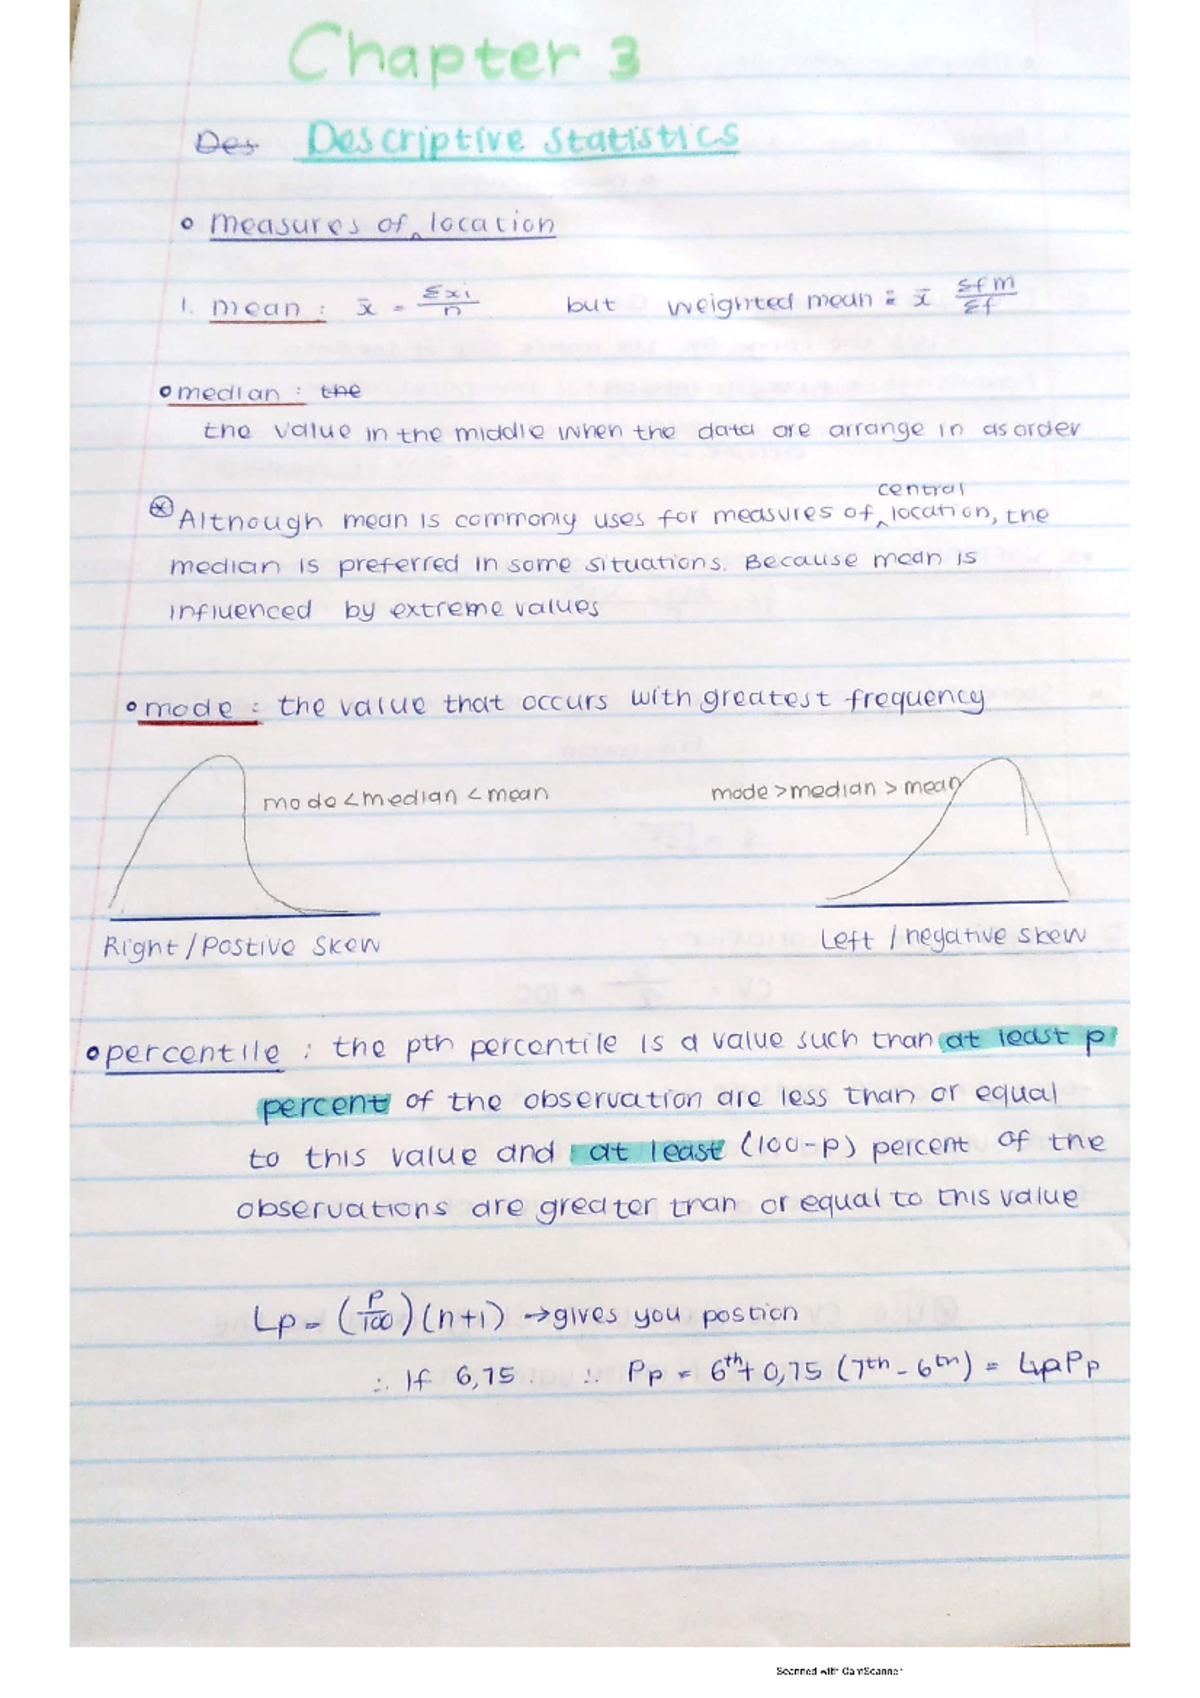 Chapter 3
Des Descriptive Statistics
• measures of location
1. mean : x̄ = Σxi/n but weighted mean = x̄ Σfm/Σf
• median : the
the value in the middle when the data are arrange in as order
central
⊛ Although mean is commonly uses for measures of ‸ location, the
median is preferred in some situations. Because mean is
influenced by extreme values
• mode : the value that occurs with greatest frequency
mode < median < mean mode > median > mean
Right / Postive Skew Left / negative skew
• percentile : the pth percentile is a value such than at least p
percent of the observation are less than or equal
to this value and at least (100-p) percent of the
observations are greater tran or equal to this value
Lp = (P/100)(n+1) → gives you postion
∴ If 6,75 ∴ Pp = 6th + 0,75 (7th - 6th) = Pp
Scanned with CamScanner